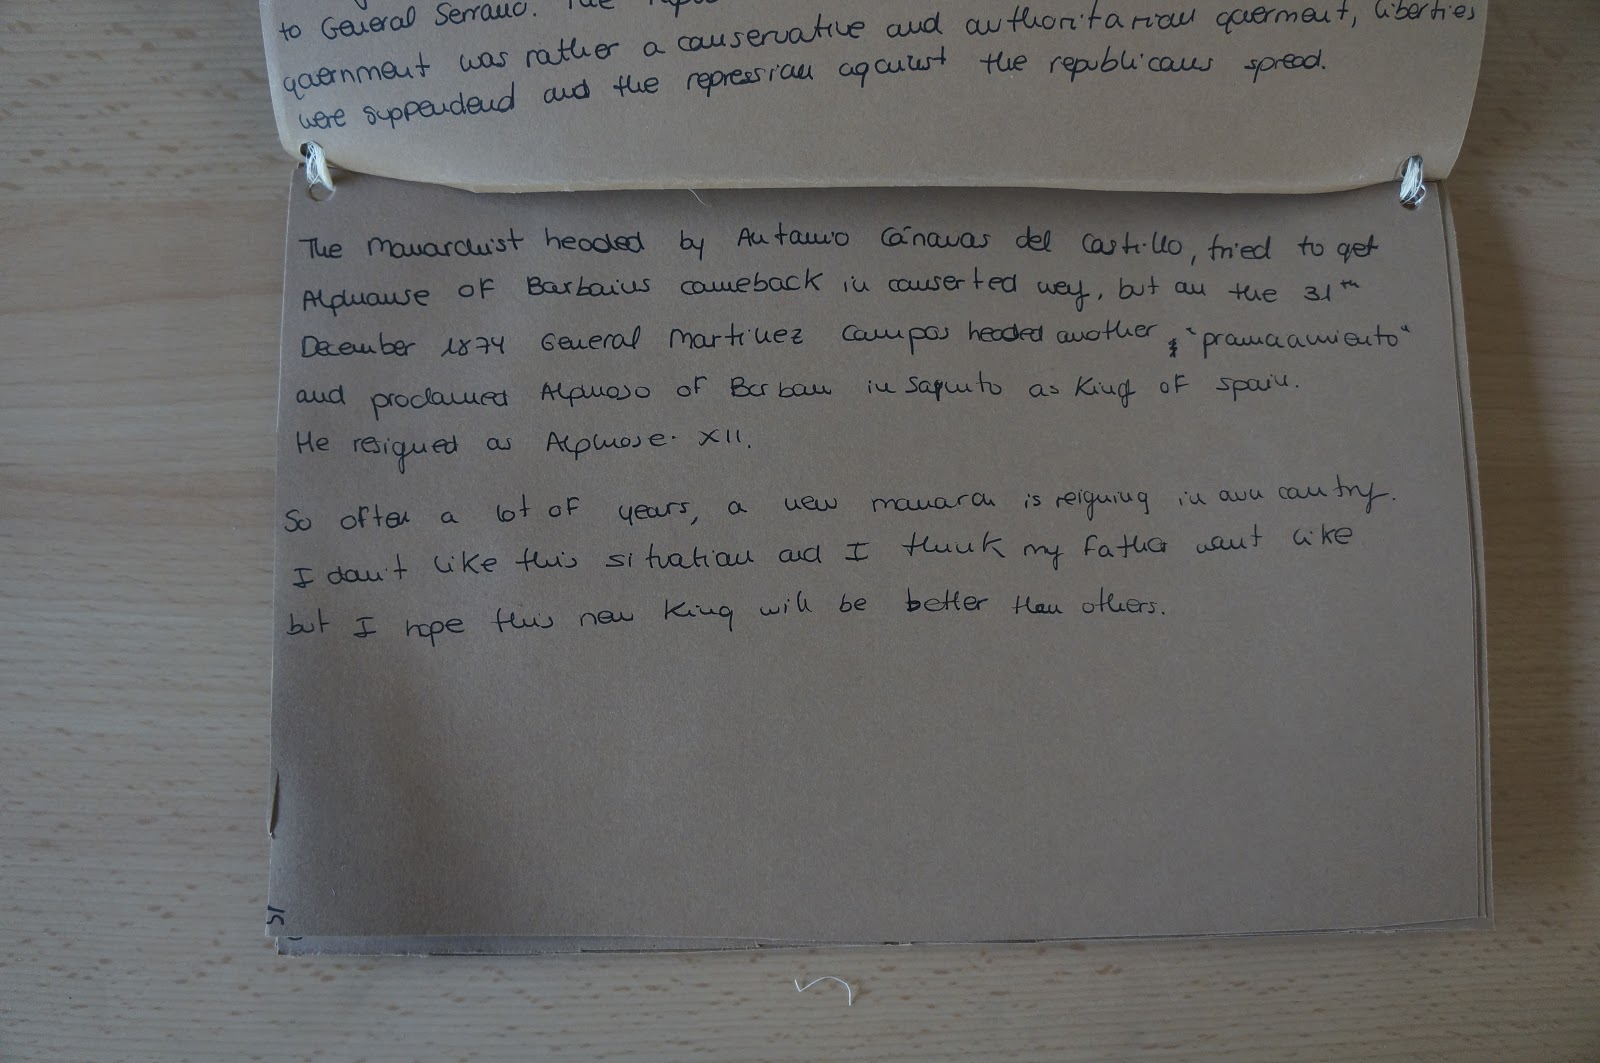 to General Serrano. The
government was rather a conservative and authoritarian goverment, liberties
were suppendend and the repression against the republicans spread.
The Monarchist headed by Antonio Cánovas del Castillo, tried to get
Alphonse of Borbons comeback in conserted wey, but on the 31th
December 1874 General Martinez Campos headed another "pronunciamiento"
and proclamed Alphoso of Borbon in Sagunto as King of Spain.
He resigned as Alphose. XII.
So after a lot of years, a new monarch is reigning in our country.
I don't like this situation and I think my father wont like
but I hope this new King will be better than others.
51